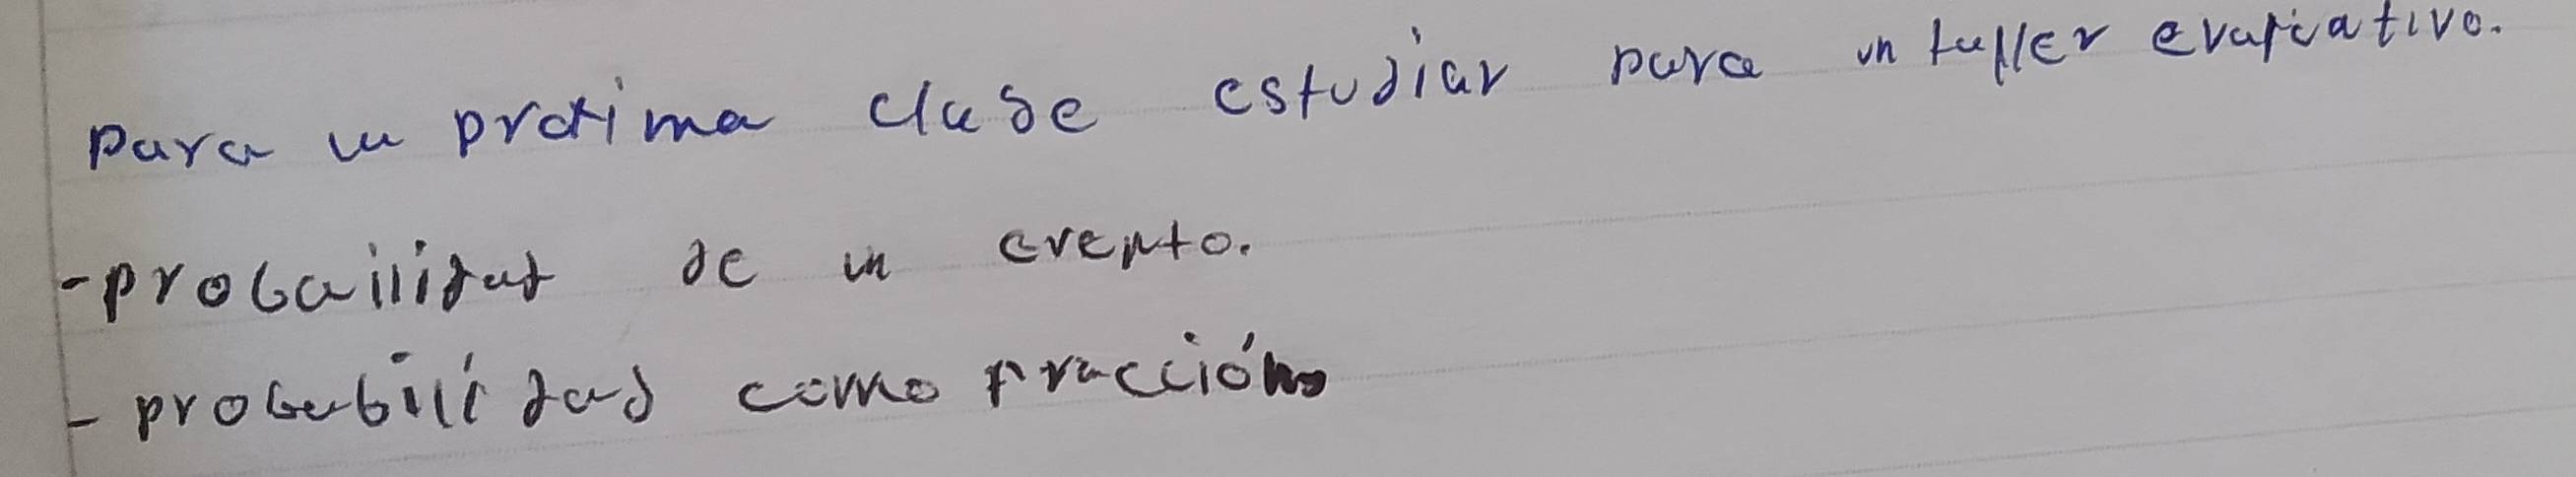 para la proxima clase estudiar para un taller evaluativo.
-probailidad de un evento.
- probabilidad como fracción